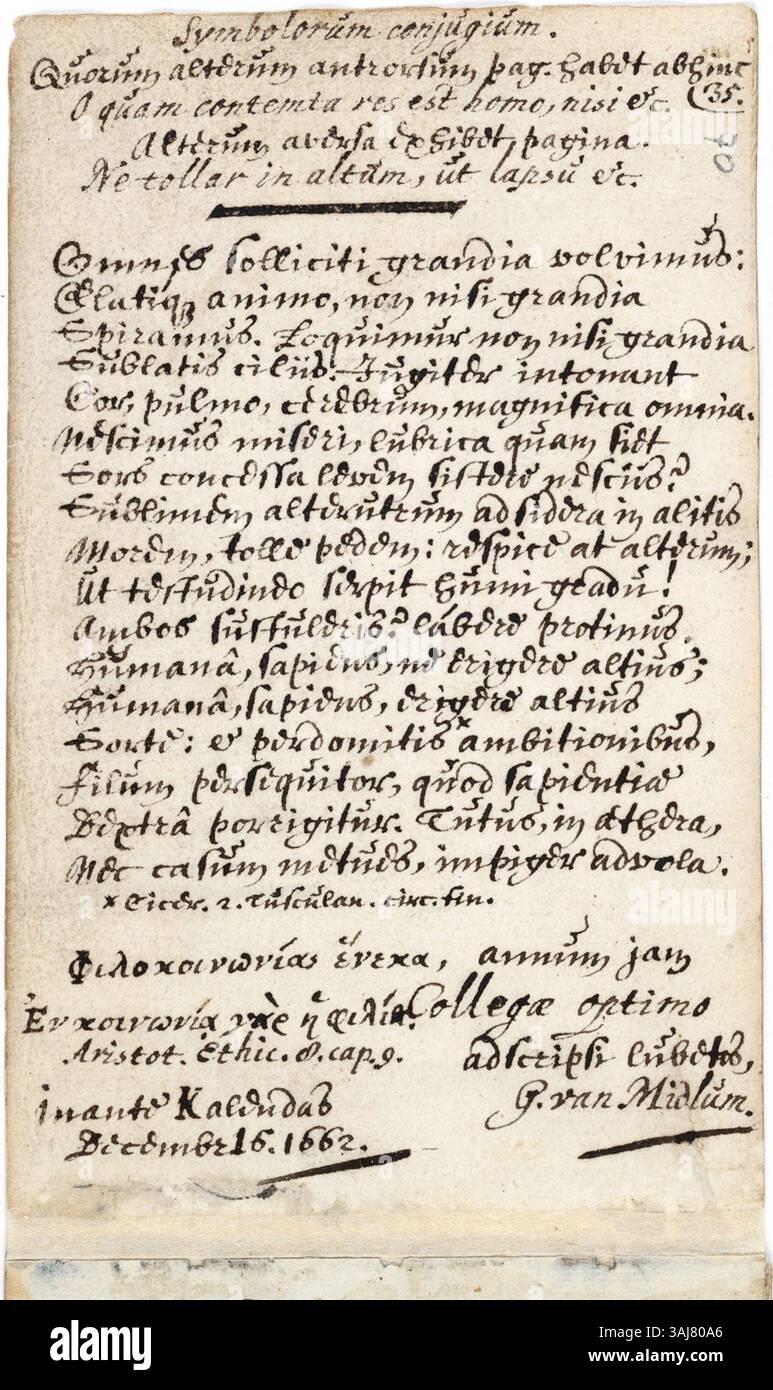 Symbolorum conjugium.
Quorum alterum antrorsum pag. habet abhinc
O quam contemta res est homo, nisi &c. (35.
Alterum aversa exhibet pagina.
70
Ne tollar in altum, ut lapsu &c.
Omnes solliciti grandia volvimus:
Elatiq; animo, non nisi grandia
Spiramus. Loquimur non nisi grandia
Sublatis ciliis: Jugiter intonant
Cor, pulmo, cerebrum, magnifica omnia.
Nescimus miseri, lubrica quam siet
Sors concessa levem sistere nesciis?
Sublimem alterutrum ad sidera in alitis
Morem, tolle pedem: respice at alterum;
Ut testudineo serpit humi gradu!
Ambos sustuleris? lábere protinus.
Humanâ, sapiens, ne erigere altius;
Humanâ, sapiens, erigere altius
Sorte: & perdomitis x ambitionibus,
Filum persequitor, quod sapientiæ
Dextrâ porrigitur. Tutus, in æthera,
Nec casum metues, impiger advola.
x Cicer. 2. Tusculan. circ. fin.
Φιλοκοινωνίας ἕνεκα, annum jam
Ἐν κοινωνίᾳ γὰρ ἡ φιλία. Collegæ optimo
Aristot. Ethic. 8. cap. 9. adscripsi lubens,
in ante Kalendas G. van Midlum.
Decembr 16. 1662.
alamy
Image ID: 3AJ80A6
www.alamy.com